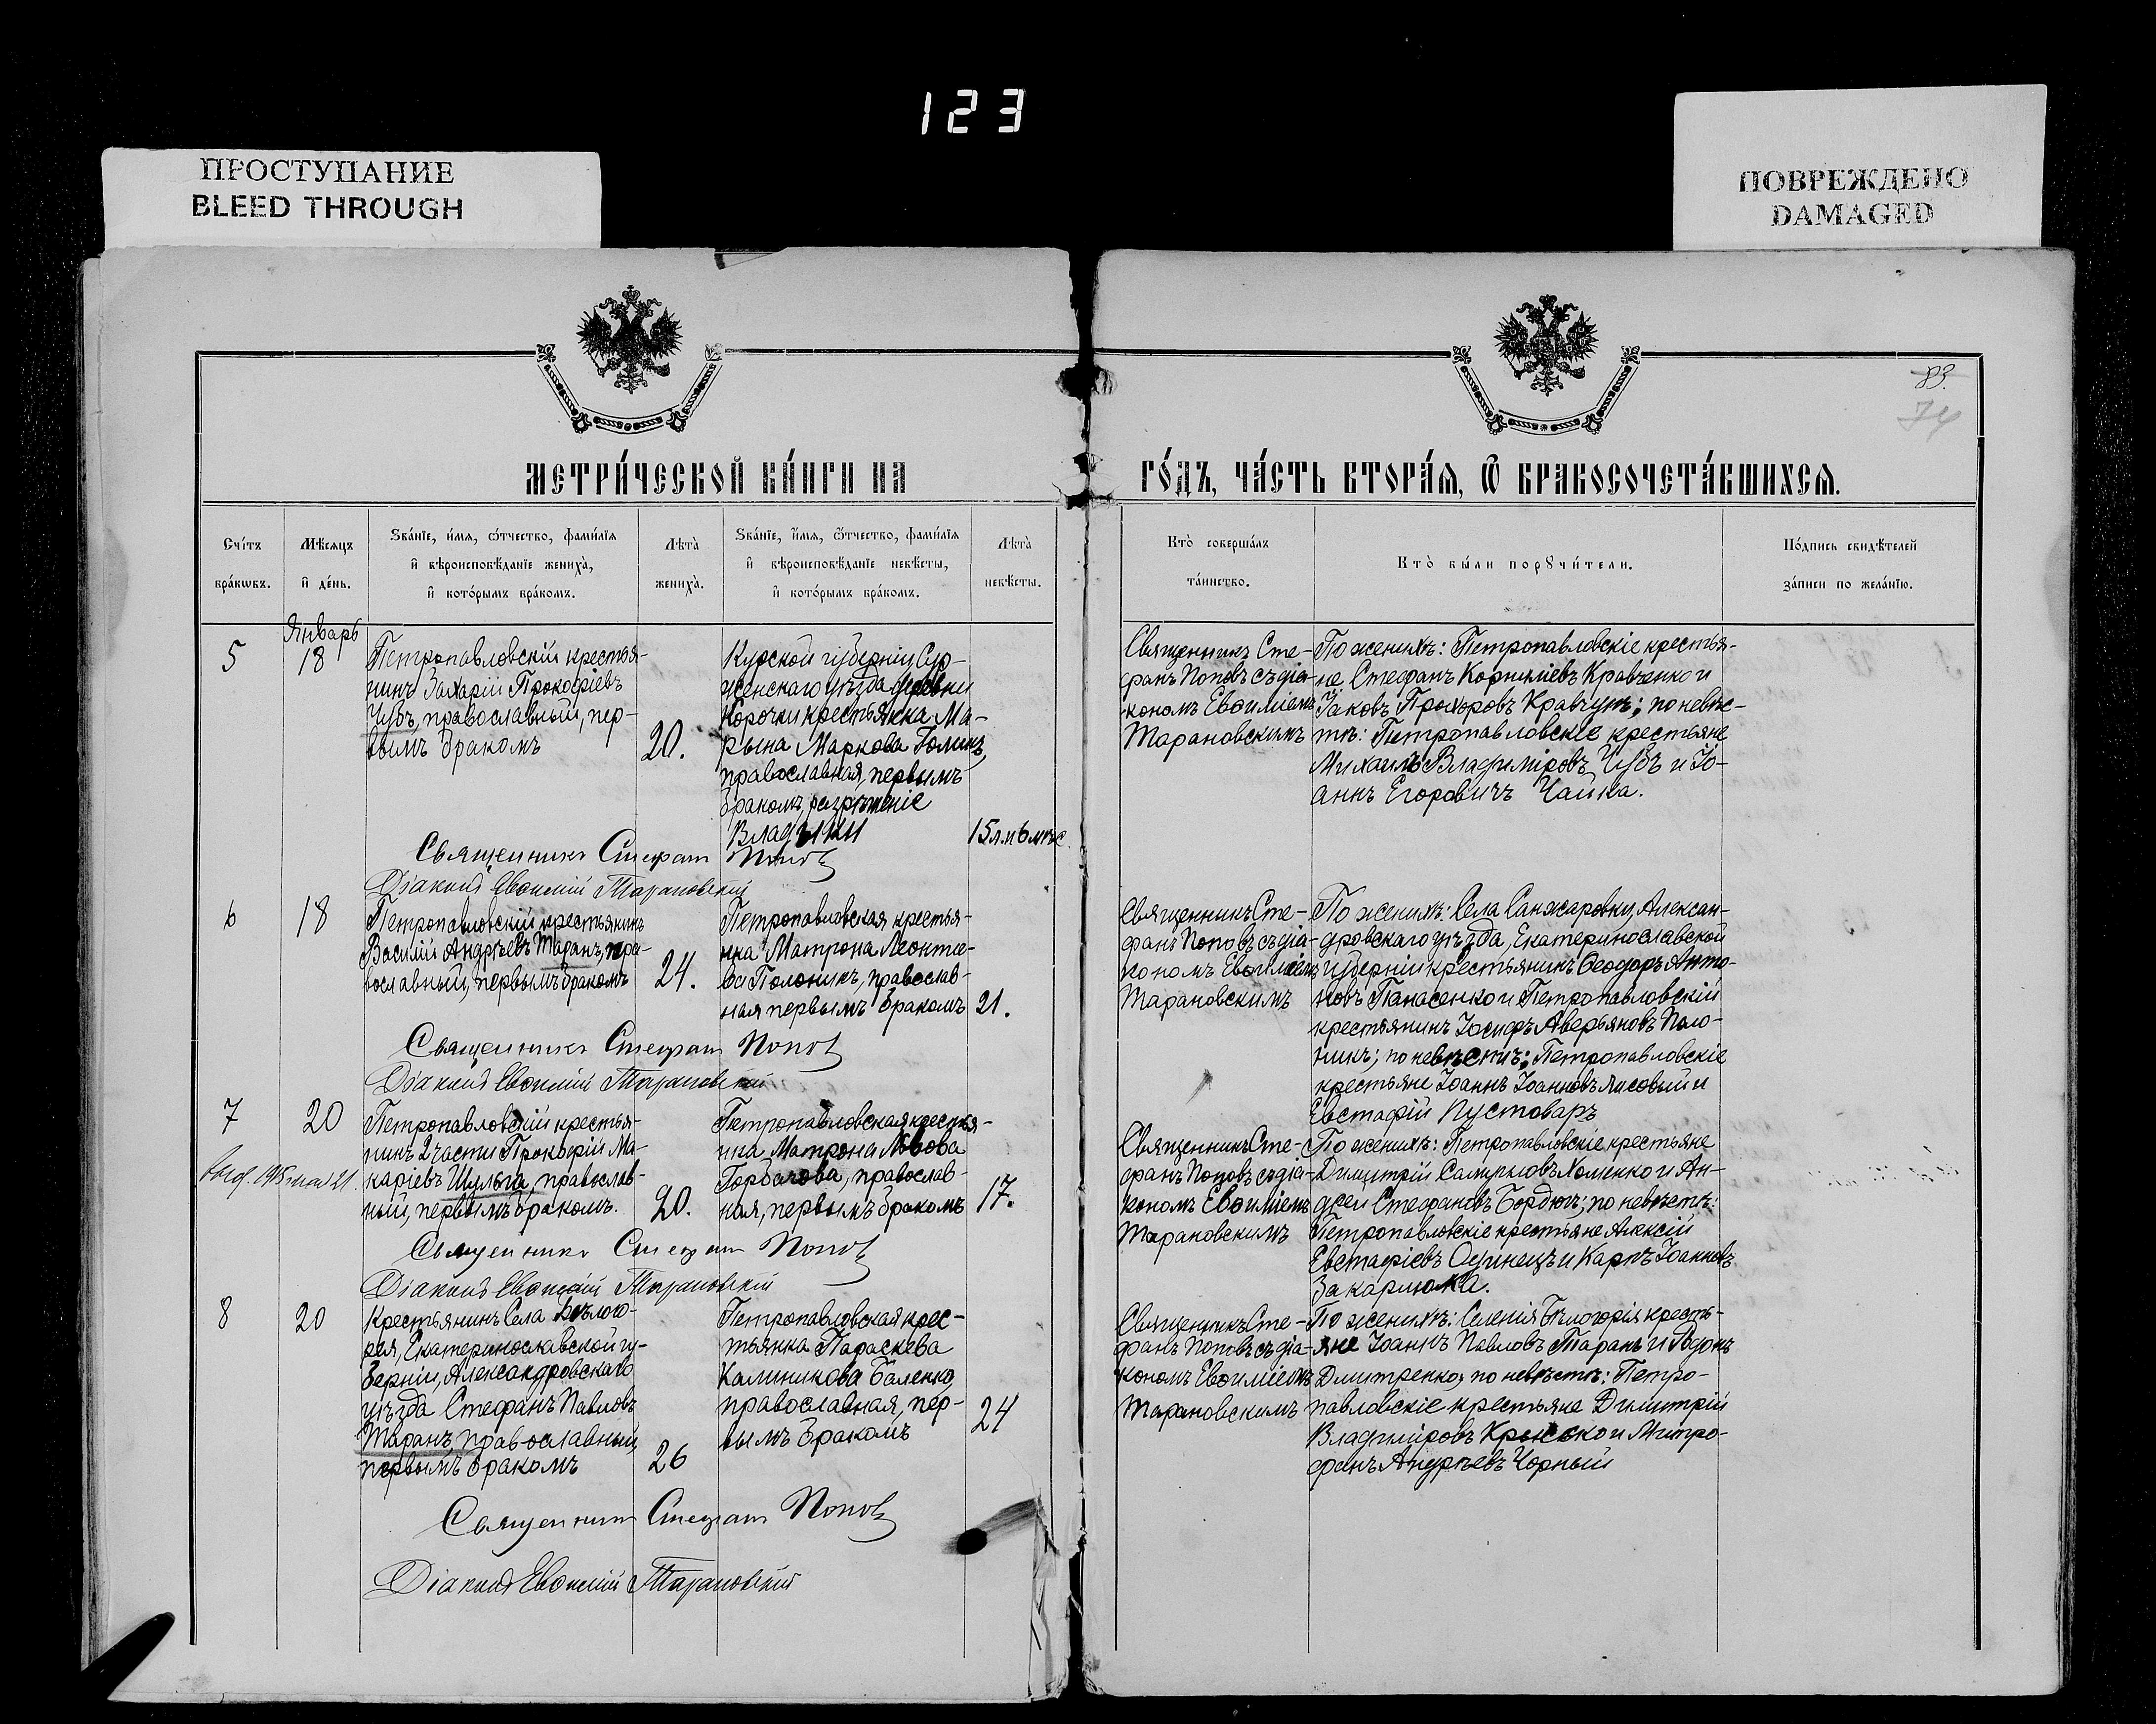 123
ПРОСТУПАНИЕ
BLEED THROUGH
ПОВРЕЖДЕНО
DAMAGED
83.
74
МЕТРИ́ЧЕСКОЙ КНИ́ГИ НА
ГО́ДЪ, ЧА́СТЬ ВТОРА́Ѧ, Ѿ БРАКОСОЧЕТА́ВШИХСѦ.
Сче́тъ
бра́кѡвъ.
Мѣ́сѧцъ
и҆ де́нь.
Ѕва́нїе, и҆́мѧ, ѻ҆́тчество, фами́лїѧ
и҆ вѣроисповѣ́данїе жениха̀,
и҆ кото́рымъ бра́комъ.
Лѣта̀
жениха̀.
Ѕва́нїе, и҆́мѧ, ѻ҆́тчество, фами́лїѧ
и҆ вѣроисповѣ́данїе невѣ́сты,
и҆ кото́рымъ бра́комъ.
Лѣта̀
невѣ́сты.
Кто̀ соверша́лъ
та́инство.
Кто̀ бы́ли порꙋчи́тели.
По́дпись свидѣ́телей
за́писи по жела́нїю.
Январь
5
18
Петропавловскій крестья-
нинъ Захарій Прокофіевъ
Чубъ, православный, пер-
вымъ бракомъ
20.
Курской губерніи Суд-
женскаго уѣзда деревни
Корочки крестьянка Ма-
рына Маркова Голикъ,
православная, первымъ
бракомъ, разрѣшеніе
Владыки
15 л. и 6 мѣс.
Священникъ Сте-
фанъ Поповъ съ діа-
кономъ Евѳиміемъ
Тарановскимъ
По женихѣ: Петропавловскіе крестья-
не Стефанъ Корниліевъ Кравченко и
Іаковъ Прохоровъ Кравчукъ; по невѣс-
тѣ: Петропавловскіе крестьяне
Михаилъ Владиміровъ Чубъ и Іо-
аннъ Егоровичъ Чайка.
Священникъ Стефанъ Поповъ
Діаконъ Евѳимій Тарановскій
6
18
Петропавловскій крестьянинъ
Василій Андреевъ Таранъ, пра-
вославный, первымъ бракомъ
24.
Петропавловская крестья-
нка Матрона Леонтіе-
ва Полоникъ, православ-
ная первымъ бракомъ
21.
Священникъ Сте-
фанъ Поповъ съ діа-
кономъ Евѳиміемъ
Тарановскимъ
По женихѣ: Села Санжаровки, Алексан-
дровскаго уѣзда, Екатеринославской
губерніи крестьянинъ Ѳеодоръ Анто-
новъ Панасенко и Петропавловскій
крестьянинъ Іосифъ Аверьяновъ Поло-
никъ; по невѣстѣ: Петропавловскіе
крестьяне Іоаннъ Іоанновъ Лисовый и
Евстафій Пустоваръ
Священникъ Стефанъ Поповъ
Діаконъ Евѳимій Тарановскій
7
20
Петропавловскій крестья-
нинъ 2 части Прокофій Ма-
каріевъ Шульга, православ-
ный, первымъ бракомъ.
20.
Петропавловская крестья-
нка Матрона Львова
Горбачова, православ-
ная, первымъ бракомъ
17.
Священникъ Сте-
фанъ Поповъ съ діа-
кономъ Евѳиміемъ
Тарановскимъ
По женихѣ: Петропавловскіе крестьяне
Димитрій Самуиловъ Хоменко и Ан-
дрей Стефановъ Бордюгъ; по невѣстѣ:
Петропавловскіе крестьяне Алексій
Евстафіевъ Одинецъ и Карпъ Іоанновъ
Закарлюка.
Священникъ Стефанъ Поповъ
Діаконъ Евѳимій Тарановскій
8
20
Крестьянинъ Села Бѣлого-
рія, Екатеринославской гу-
берніи, Александровскаго
уѣзда Стефанъ Павловъ
Таранъ, православный,
первымъ бракомъ
26
Петропавловская крес-
тьянка Параскева
Калиникова Баленко
православная, пер-
вымъ бракомъ
24
Священникъ Сте-
фанъ Поповъ съ діа-
кономъ Евѳиміемъ
Тарановскимъ
По женихѣ: Селенія Бѣлогорія кресть-
яне Іоаннъ Павловъ Таранъ и
Дмитренко, по невѣстѣ: Петро-
павловскіе крестьяне Димитрій
Владиміровъ и Митро-
фанъ Андреевъ Чорный
Священникъ Стефанъ Поповъ
Діаконъ Евѳимій Тарановскій